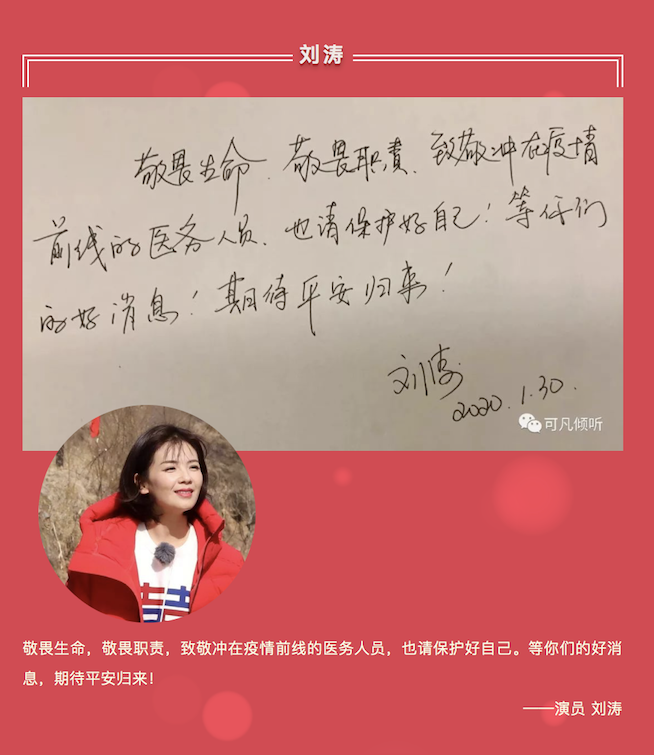 刘涛
敬畏生命、敬畏职责、致敬冲在疫情
前线的医务人员、也请保护好自己！等你们
的好消息！期待平安归来！
刘涛
2020.1.30.
可凡倾听
敬畏生命，敬畏职责，致敬冲在疫情前线的医务人员，也请保护好自己。等你们的好消
息，期待平安归来！
——演员 刘涛